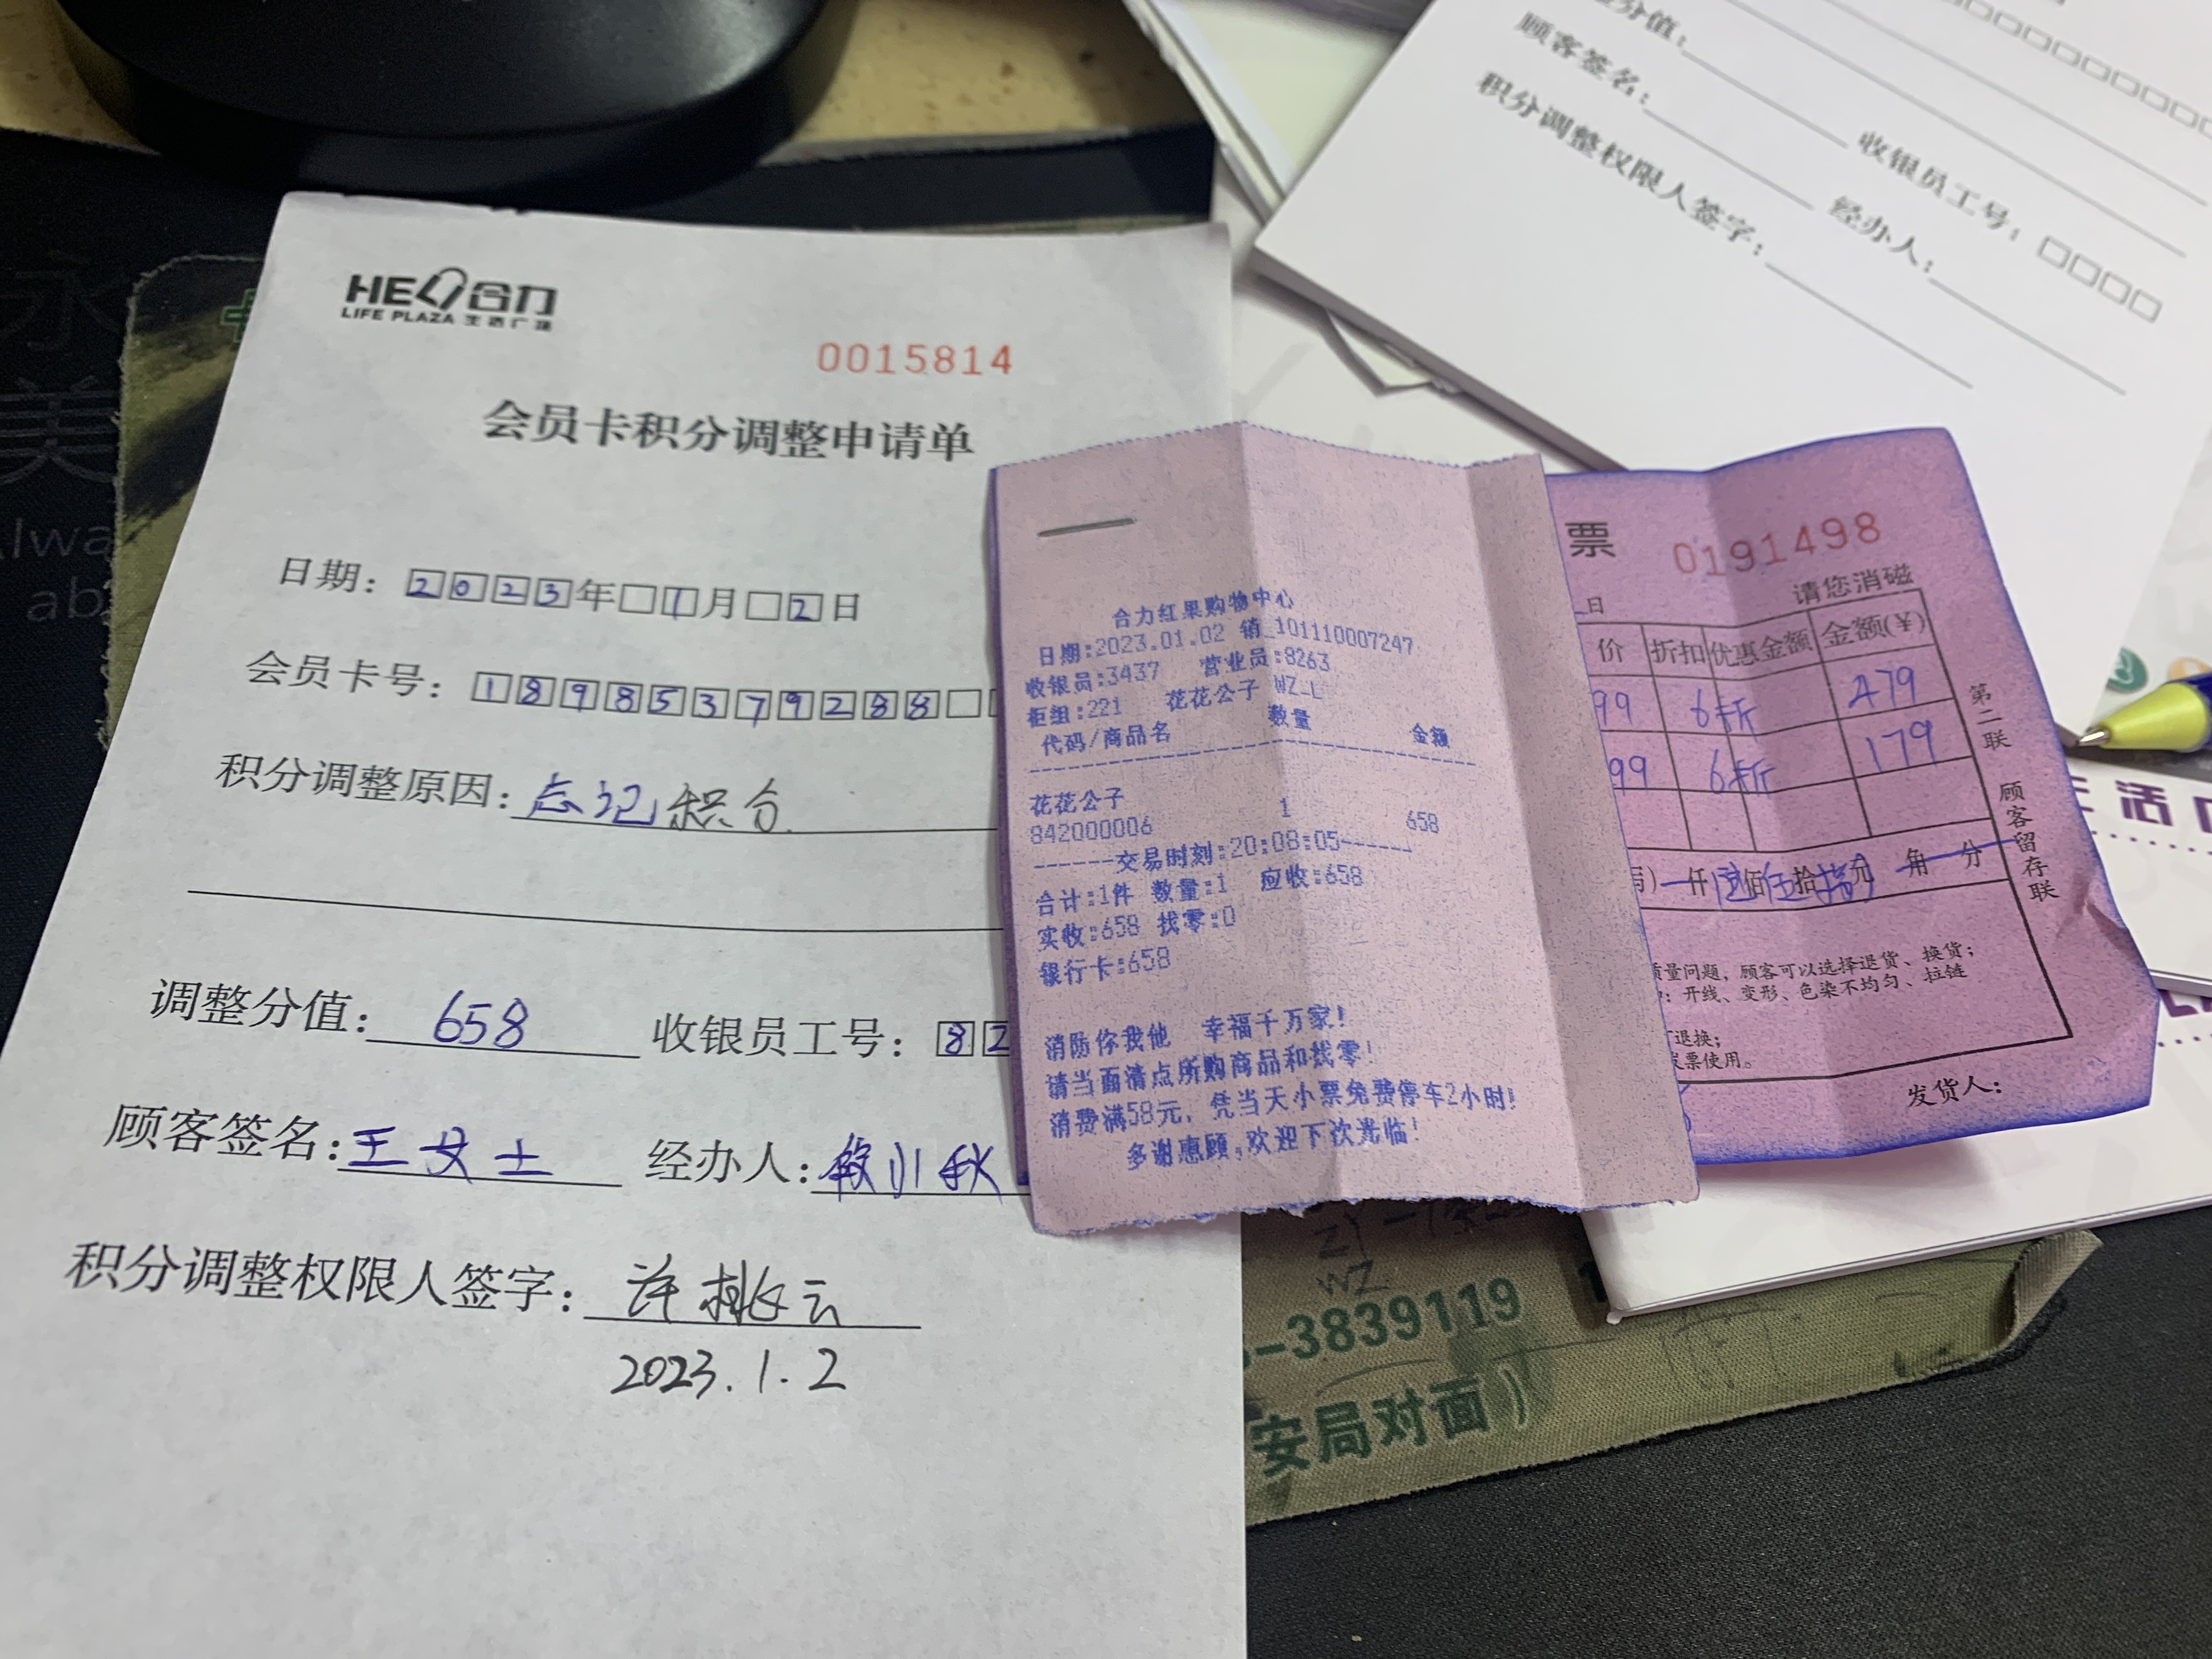 HE 合力
LIFE PLAZA 生活广场
0015814
会员卡积分调整申请单
日期：2023年 1月 2日
会员卡号：18985379288
积分调整原因：忘记积分
调整分值：658 收银员工号：82
顾客签名：王女士 经办人：小秋
积分调整权限人签字：许桃云
2023.1.2
合力红果购物中心
日期:2023.01.02 销_101110007247
收银员:3437 营业员:8263
柜组:221 花花公子 WZ_L
代码/商品名 数量 金额
花花公子
842000006 1 658
------交易时刻:20:08:05------
合计:1件 数量:1 应收:658
实收:658 找零:0
银行卡:658
消防你我他 幸福千万家!
请当面清点所购商品和找零!
消费满58元, 凭当天小票免费停车2小时!
多谢惠顾,欢迎下次光临!
票 0191498
日 请您消磁
价 折扣 优惠金额 金额(¥)
99 6折 479
99 6折 179
仟 佰 伍拾 元 角 分
第二联 顾客留存联
质量问题，顾客可以选择退货、换货；
：开线、变形、色染不均匀、拉链
退换；
票使用。
发货人：
分值：
顾客签名： 收银员工号：□□□□
积分调整权限人签字： 经办人：
生活
-3839119
安局对面）
WZ
永
美
Alwa
ab